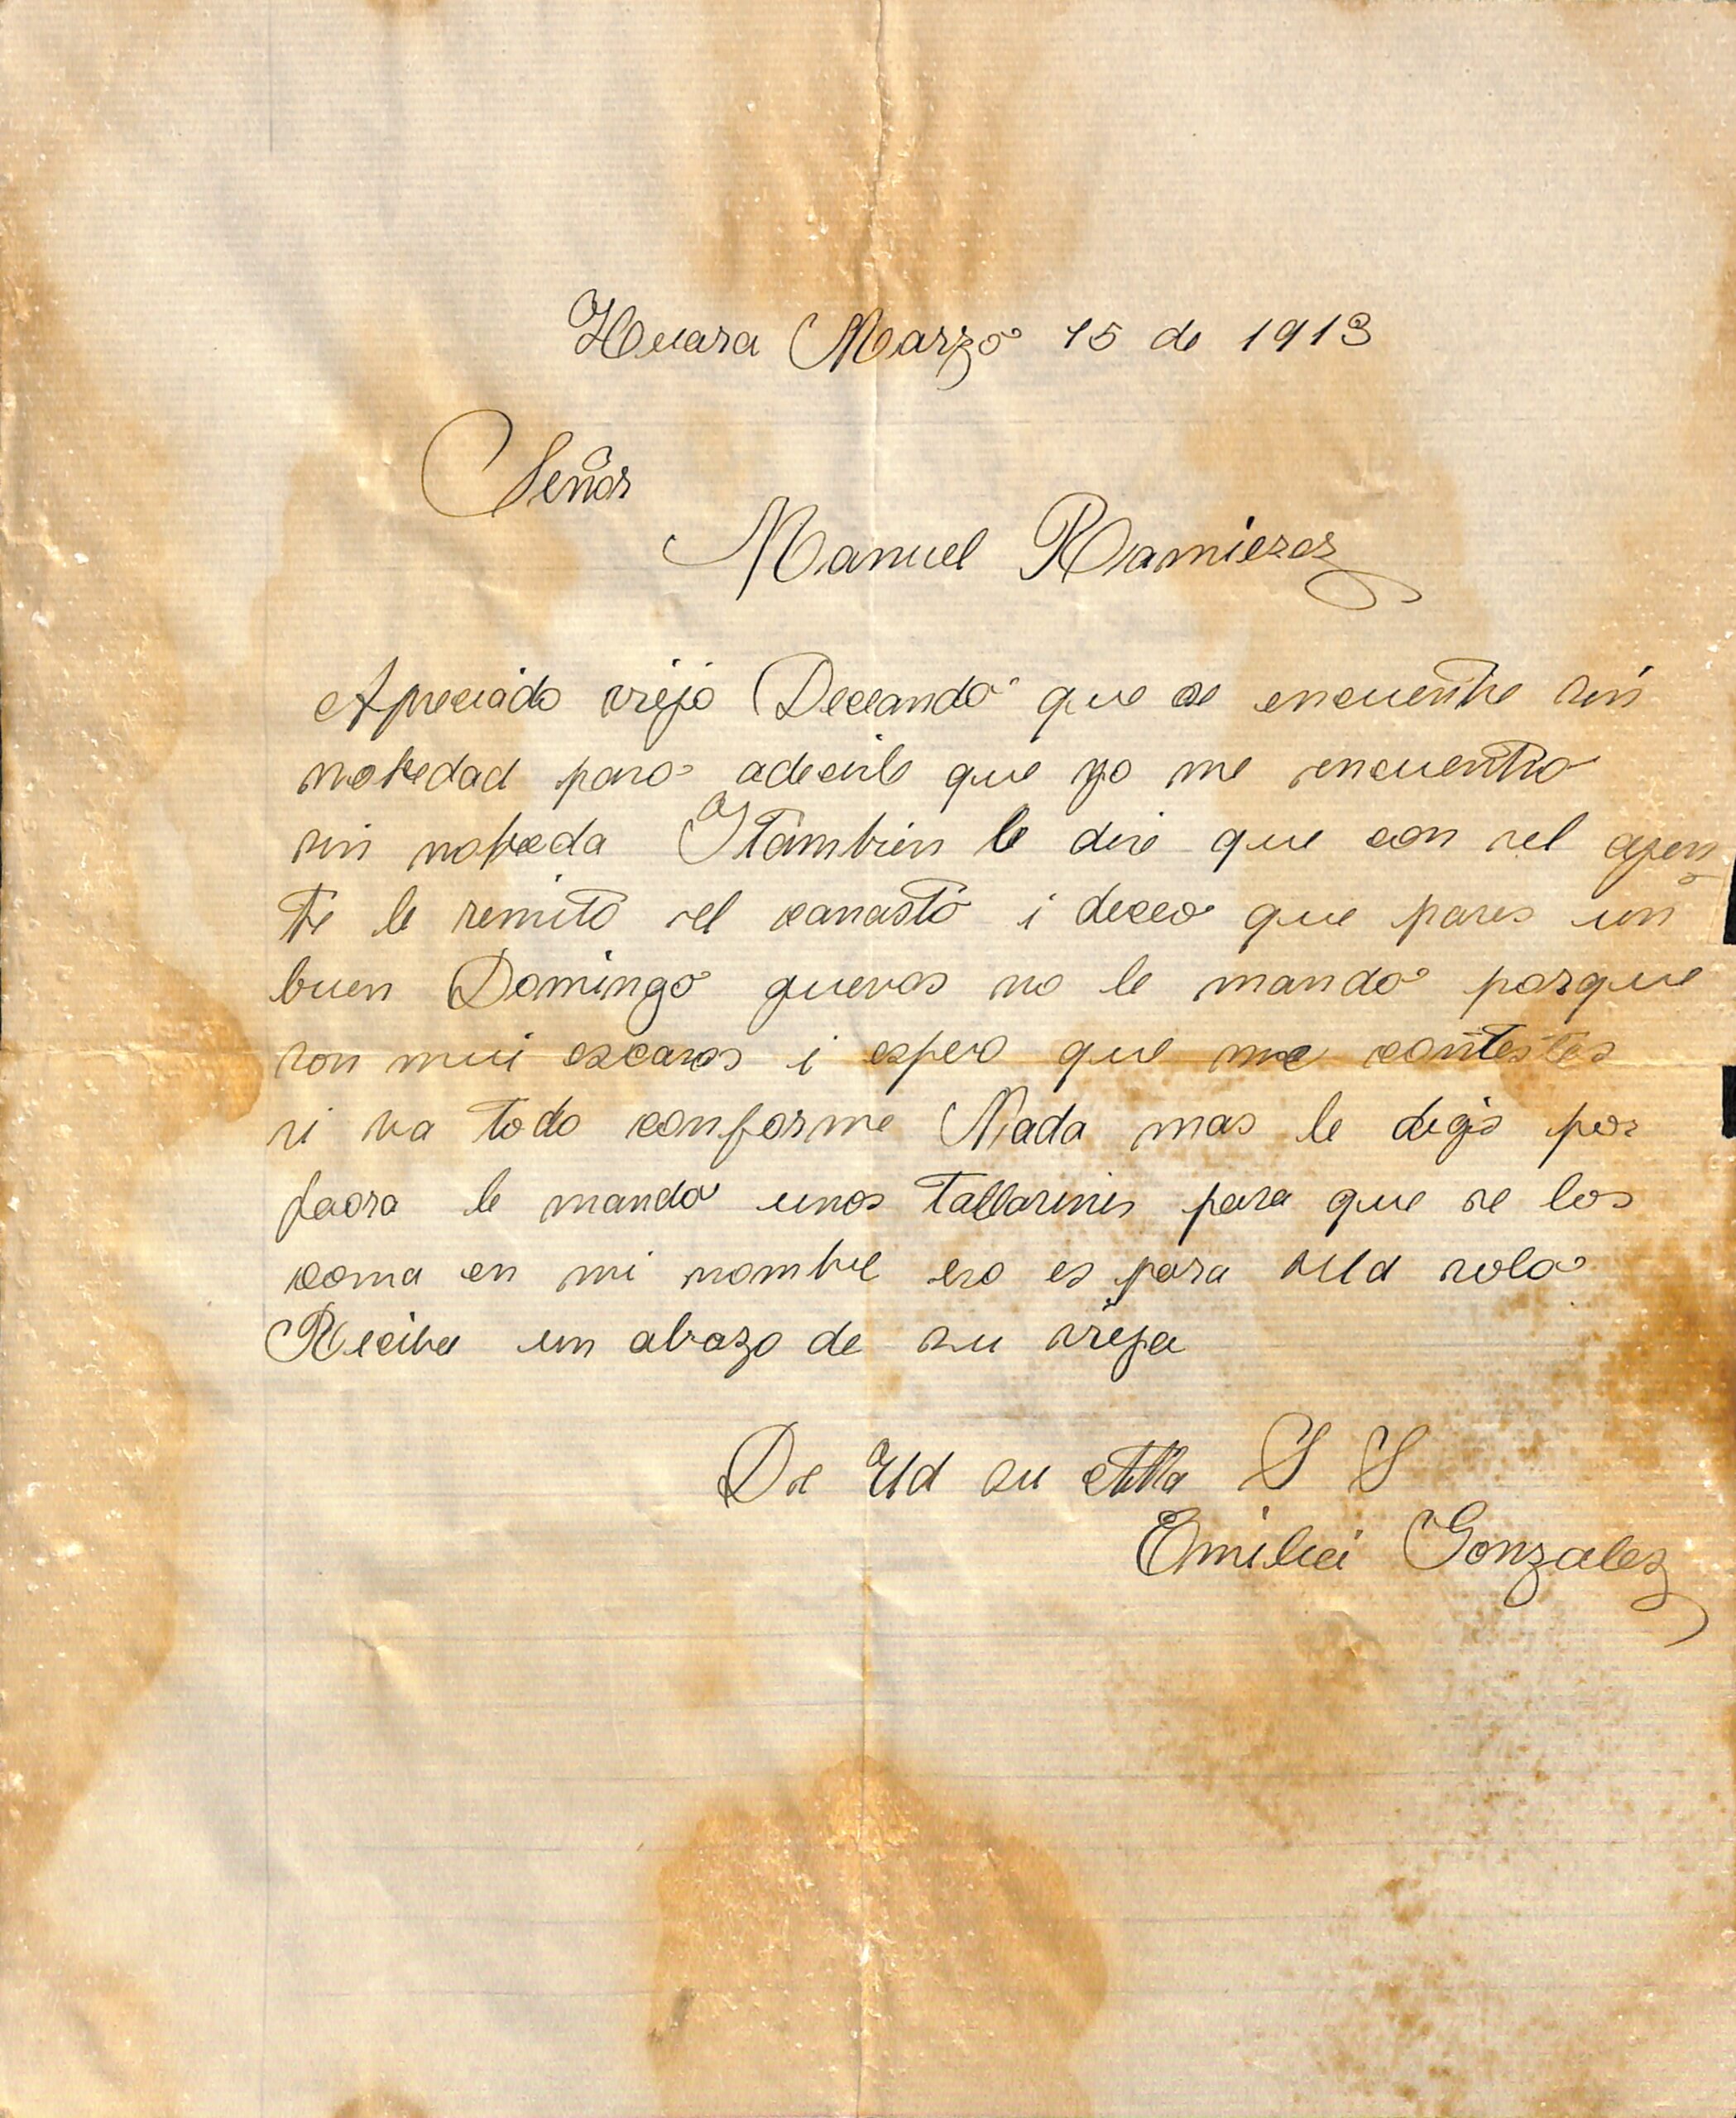 Huara Marzo 15 de 1913
Señor
Manuel Ramierez
Apreciado viejo Deceando que se encuentre sin
nobedad paso adecirle que yo me encuentro
sin nobeda Y tambien le dire que con el ajen
te le remito el canasto i deceo que pases un
buen Domingo guevos no le mando porque
son mui escasos i espero que me contestes
si va todo conforme Nada mas le digo por
faora le mando unos tallarines para que se los
coma en mi nombre eso es para Ud solo
Reciba un abrazo de su vieja
De Ud su Atta S S
Emilia Gonzalez